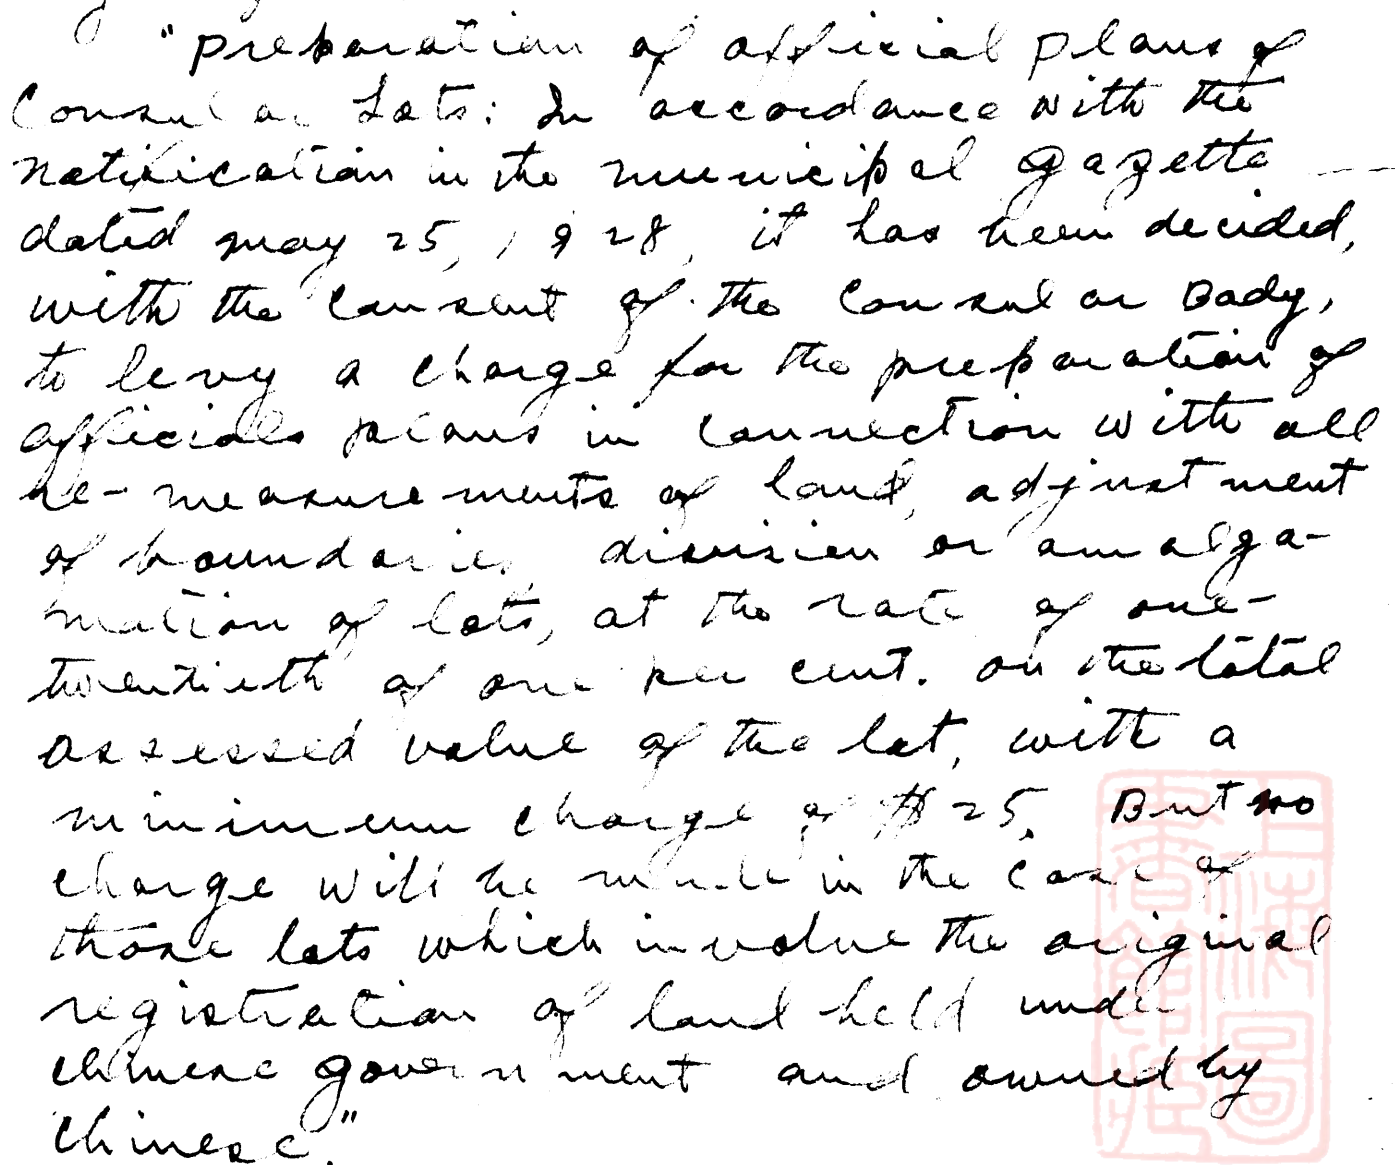 "Preparation of official plans of
Consular Lots: In accordance with the
notification in the municipal gazette
dated may 25, 1928, it has been decided,
with the consent of the Consular Body,
to levy a charge for the preparation of
officials plans in connection with all
re-measurements of land, adjustment
of boundaries, division or amalga-
mation of lots, at the rate of one-
twentieth of one per cent. on the total
assessed value of the lot, with a
minimum charge of $25. But no
charge will be made in the case of
those lots which involve the original
registration of land held under
chinese government and owned by
chinese."
上海圖
書館藏